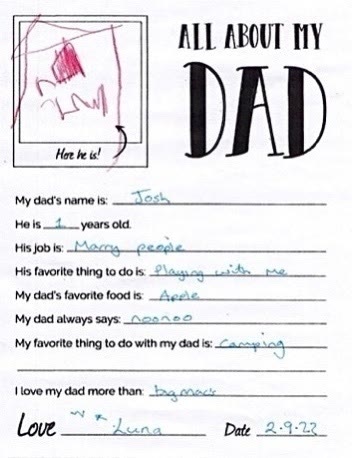 ALL ABOUT MY
DAD
Here he is!
My dad's name is: Josh
He is 1 years old.
His job is: Marry people
His favorite thing to do is: Playing with me
My dad's favorite food is: Apple
My dad always says: noonoo
My favorite thing to do with my dad is: Camping
I love my dad more than: bigmacs
Love Luna Date 2.9.22